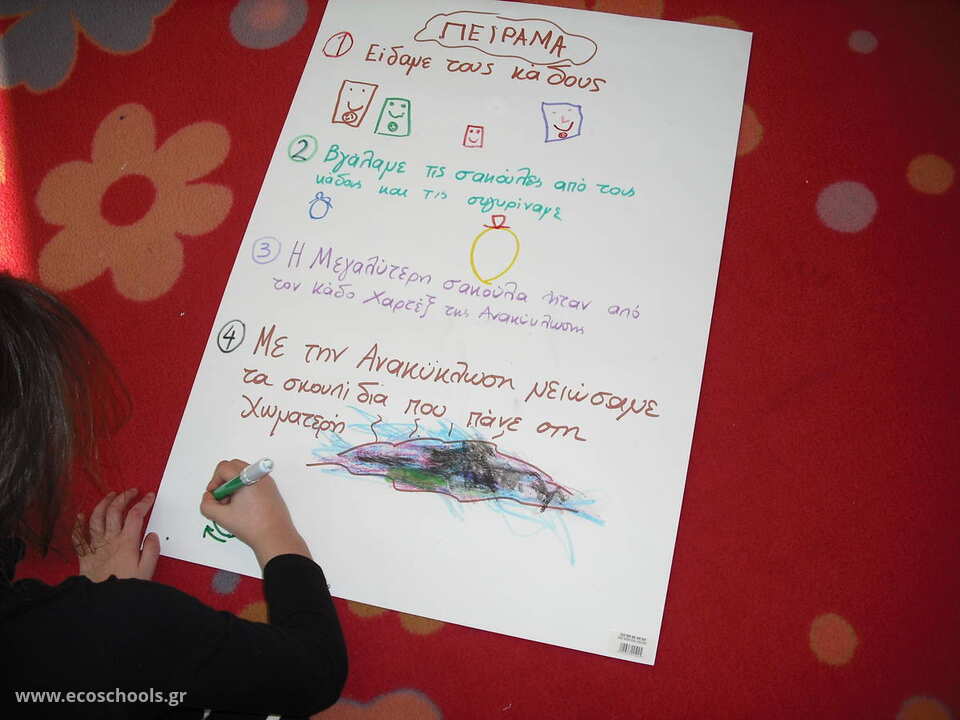 ΠΕΙΡΑΜΑ
1 Είδαμε τους κάδους
2 Βγάλαμε τις σακούλες από τους
κάδους και τις συγκρίναμε
3 Η Μεγαλύτερη σακούλα ήταν από
τον κάδο Χαρτί της Ανακύκλωσης
4 Με την Ανακύκλωση μειώσαμε
τα σκουπίδια που πάνε στη
Χωματερή
www.ecoschools.gr